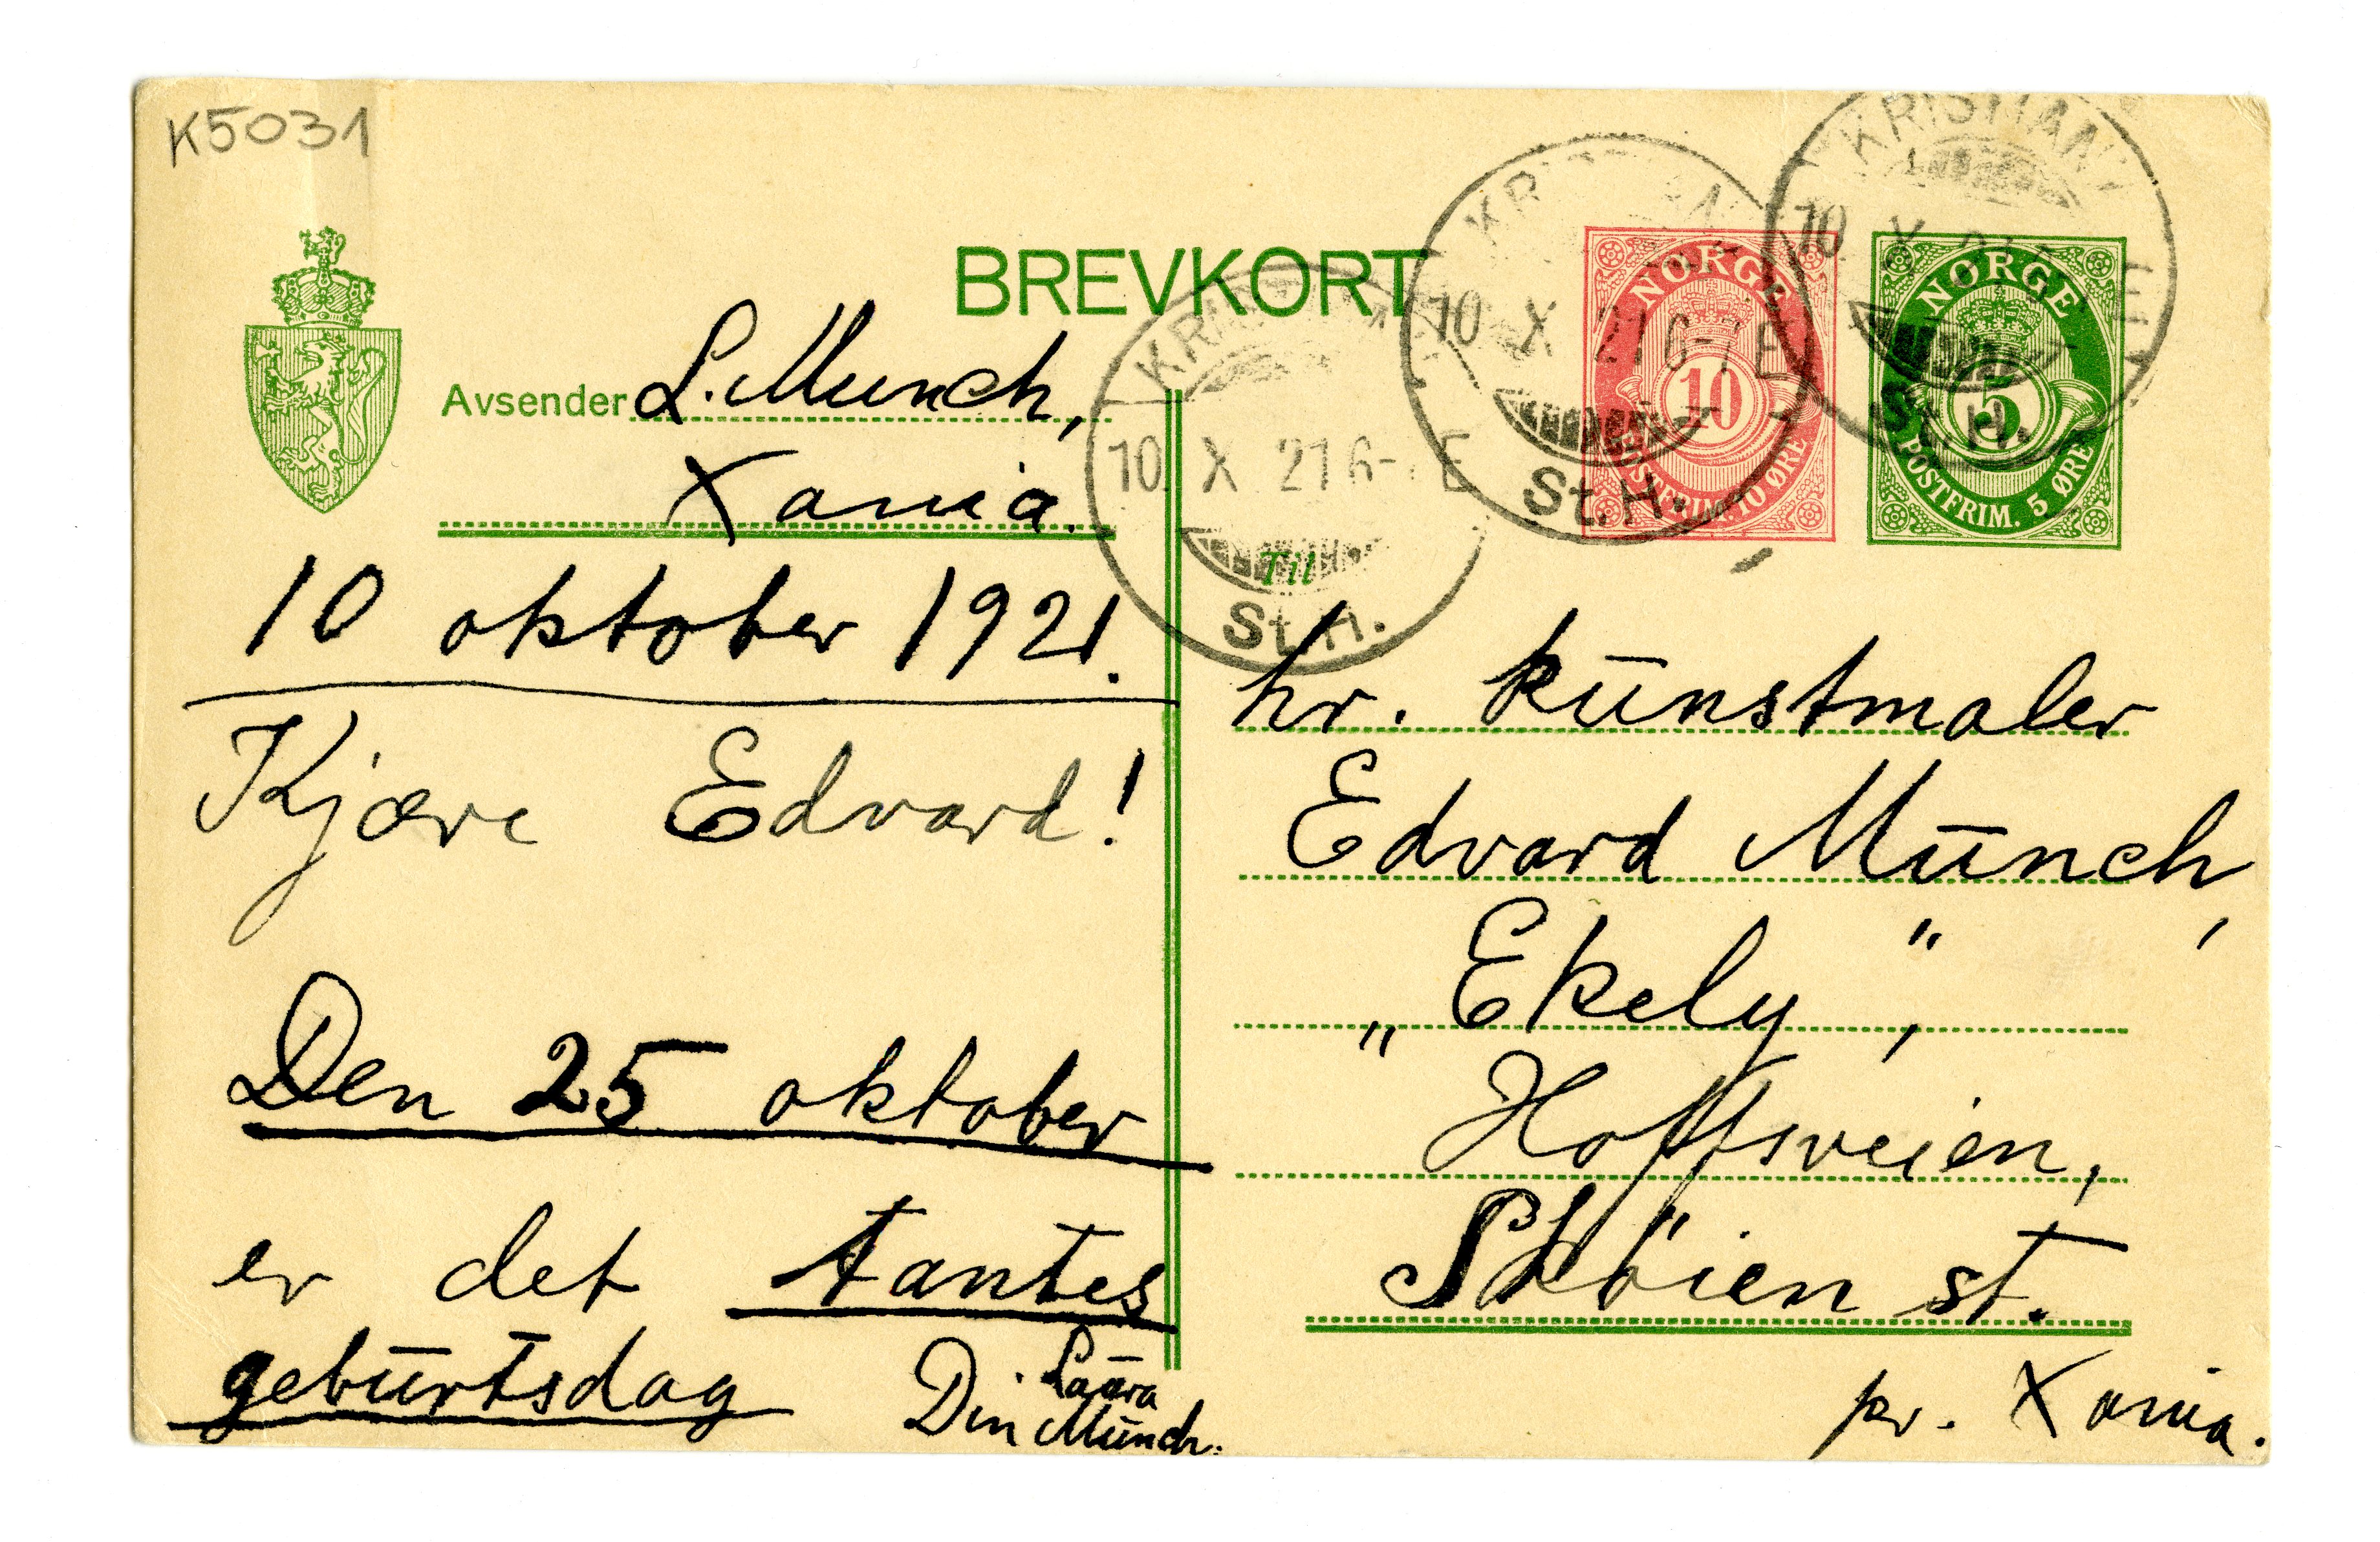 K5031
BREVKORT
Avsender L. Munch,
Xania.
10 oktober 1921.
Kjære Edvard!
Den 25 oktober
er det tantes
geburtsdag
Din Laura
Munch.
Til
hr. kunstmaler
Edvard Munch,
„Ekely“,
Hoffsveien,
Sköien st.
pr. Xania.
NORGE
10
POSTFRIM. 10 ØRE
NORGE
5
POSTFRIM. 5 ØRE
10 X 21 6- E
St.H.
KR
10 X 21 6-7 E
St.H.
KRISTIAN
10 X
St.H.